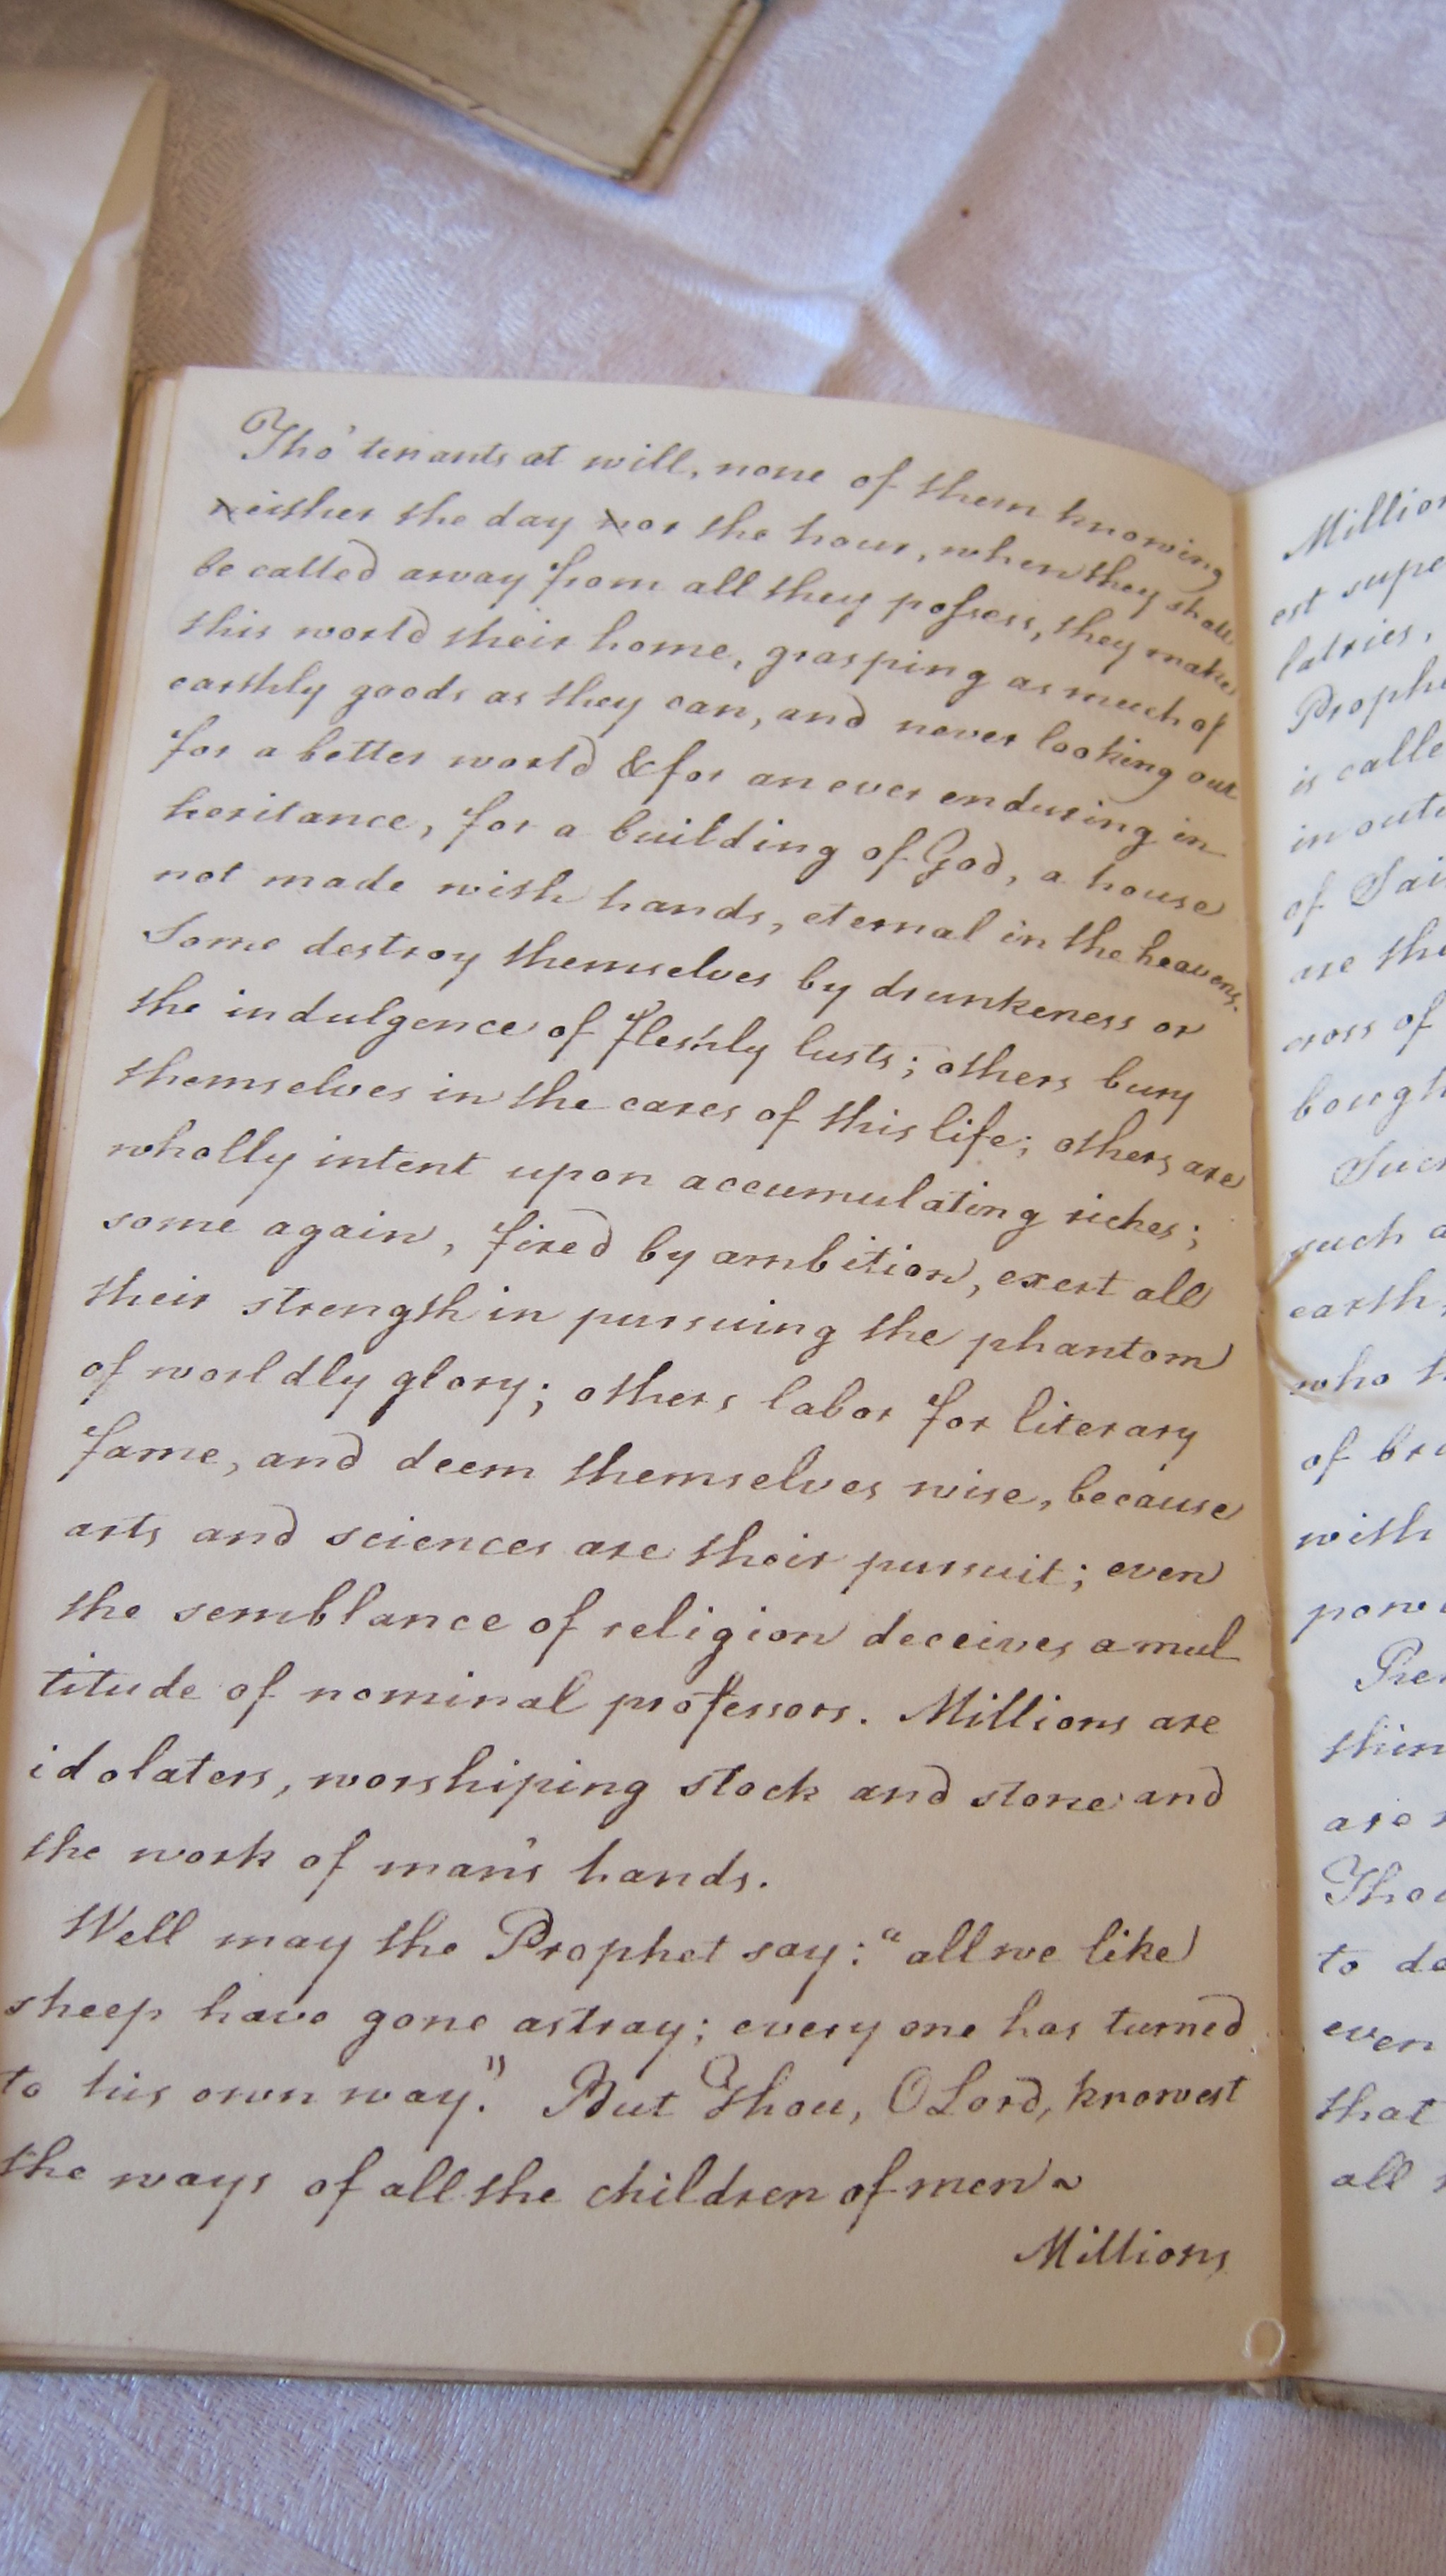 Tho' tenants at will, none of them knowing
neither the day nor the hour, when they shall
be called away from all they possess, they make
this world their home, grasping as much of
earthly goods as they can, and never looking out
for a better world & for an ever enduring in
heritance, for a building of God, a house
not made with hands, eternal in the heavens.
Some destroy themselves by drunkeness or
the indulgence of fleshly lusts; others bury
themselves in the cares of this life; others are
wholly intent upon accumulating riches;
some again, fired by ambition, exert all
their strength in pursuing the phantom
of worldly glory; others labor for literary
fame, and deem themselves wise, because
arts and sciences are their pursuit; even
the semblance of religion deceives a mul
titude of nominal professors. Millions are
idolaters, worshiping stock and stone and
the work of man's hands.
Well may the Prophet say: "all we like
sheep have gone astray; every one has turned
to his own way." But Thou, O Lord, knowest
the ways of all the children of men ~
Millions
est
is
in
of
are the
cross of
such
earth,
who
of
with
are
to
even
that
all